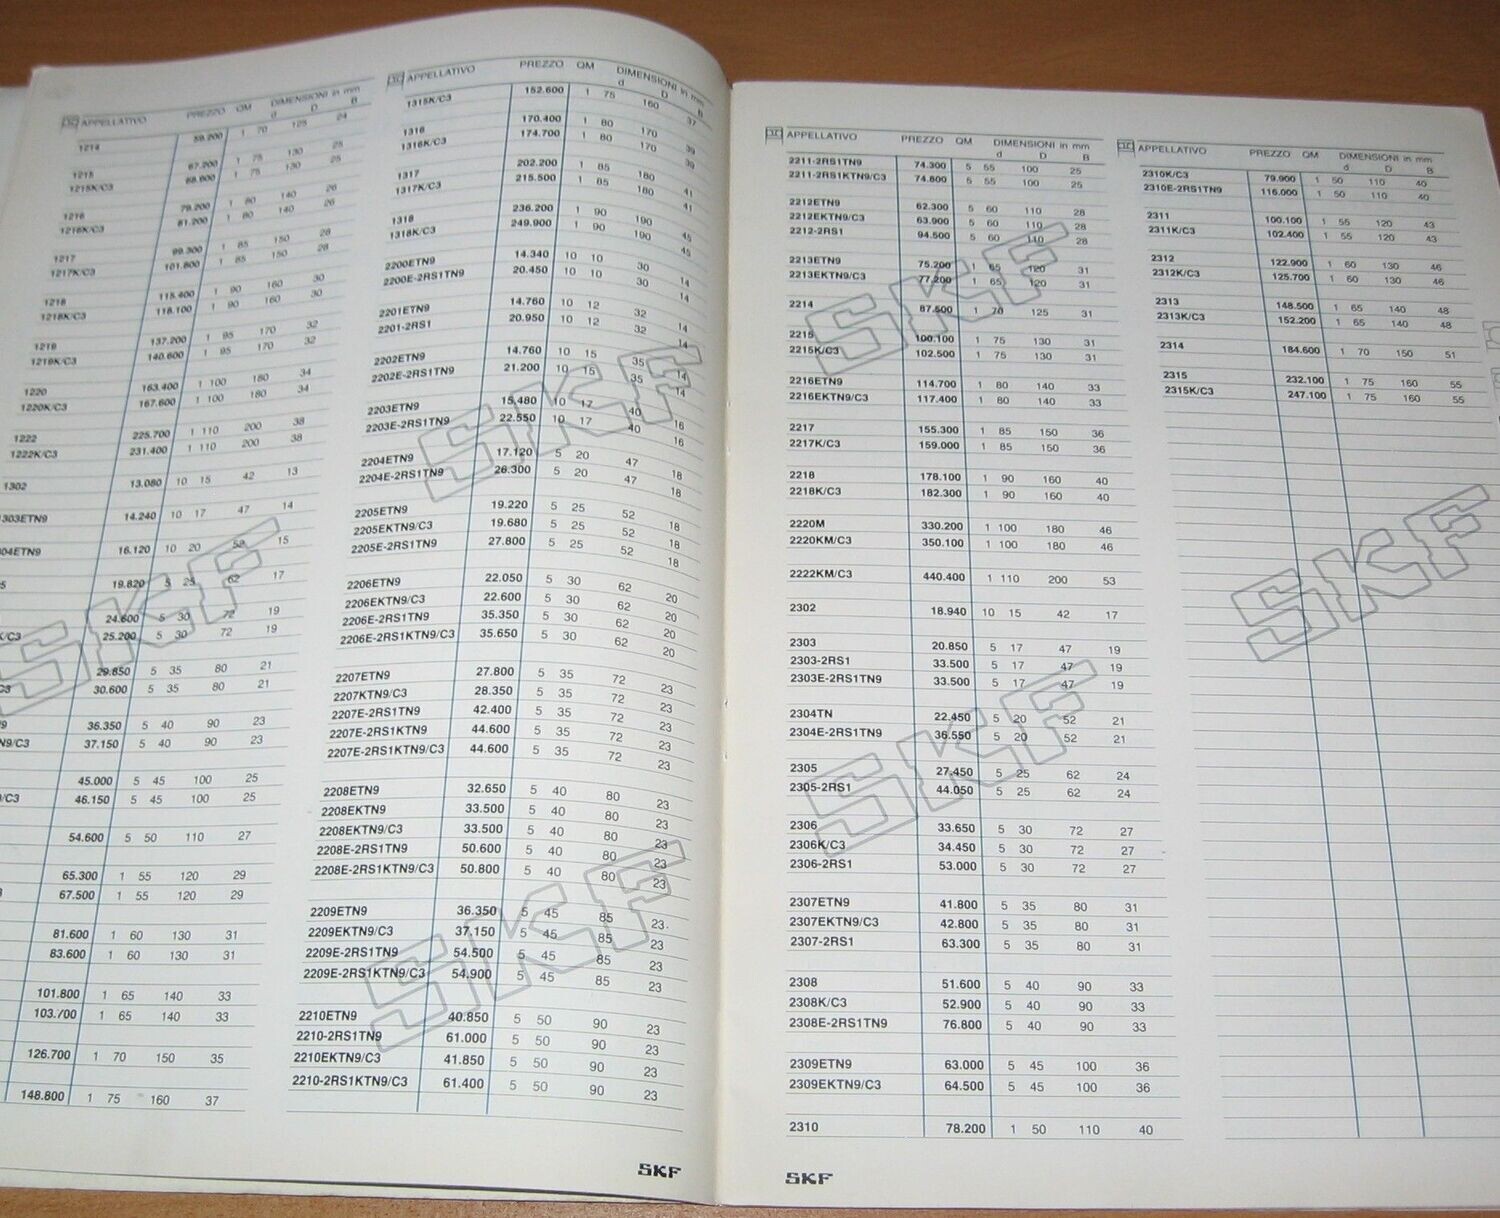 APPELLATIVO PREZZO QM DIMENSIONI in mm
d D B
1214 59.200 1 70 125 24
1215 67.200 1 75 130 25
1215K/C3 68.600 1 75 130 25
1216 79.200 1 80 140 26
1216K/C3 81.200 1 80 140 26
1217 99.300 1 85 150 28
1217K/C3 101.800 1 85 150 28
1218 115.400 1 90 160 30
1218K/C3 118.100 1 90 160 30
1219 137.200 1 95 170 32
1219K/C3 140.600 1 95 170 32
1220 163.400 1 100 180 34
1220K/C3 167.600 1 100 180 34
1222 225.700 1 110 200 38
1222K/C3 231.400 1 110 200 38
1302 13.080 10 15 42 13
1303ETN9 14.240 10 17 47 14
04ETN9 16.120 10 20 52 15
19.820 5 25 62 17
24.600 5 30 72 19
K/C3 25.200 5 30 72 19
29.850 5 35 80 21
C3 30.600 5 35 80 21
36.350 5 40 90 23
N9/C3 37.150 5 40 90 23
45.000 5 45 100 25
/C3 46.150 5 45 100 25
54.600 5 50 110 27
65.300 1 55 120 29
67.500 1 55 120 29
81.600 1 60 130 31
83.600 1 60 130 31
101.800 1 65 140 33
103.700 1 65 140 33
126.700 1 70 150 35
148.800 1 75 160 37
APPELLATIVO PREZZO QM DIMENSIONI in mm
d D B
1315K/C3 152.600 1 75 160 37
1316 170.400 1 80 170 39
1316K/C3 174.700 1 80 170 39
1317 202.200 1 85 180 41
1317K/C3 215.500 1 85 180 41
1318 236.200 1 90 190 45
1318K/C3 249.900 1 90 190 45
2200ETN9 14.340 10 10 30 14
2200E-2RS1TN9 20.450 10 10 30 14
2201ETN9 14.760 10 12 32 14
2201-2RS1 20.950 10 12 32 14
2202ETN9 14.760 10 15 35 14
2202E-2RS1TN9 21.200 10 15 35 14
2203ETN9 15.480 10 17 40 16
2203E-2RS1TN9 22.550 10 17 40 16
2204ETN9 17.120 5 20 47 18
2204E-2RS1TN9 26.300 5 20 47 18
2205ETN9 19.220 5 25 52 18
2205EKTN9/C3 19.680 5 25 52 18
2205E-2RS1TN9 27.800 5 25 52 18
2206ETN9 22.050 5 30 62 20
2206EKTN9/C3 22.600 5 30 62 20
2206E-2RS1TN9 35.350 5 30 62 20
2206E-2RS1KTN9/C3 35.650 5 30 62 20
2207ETN9 27.800 5 35 72 23
2207KTN9/C3 28.350 5 35 72 23
2207E-2RS1TN9 42.400 5 35 72 23
2207E-2RS1KTN9 44.600 5 35 72 23
2207E-2RS1KTN9/C3 44.600 5 35 72 23
2208ETN9 32.650 5 40 80 23
2208EKTN9 33.500 5 40 80 23
2208EKTN9/C3 33.500 5 40 80 23
2208E-2RS1TN9 50.600 5 40 80 23
2208E-2RS1KTN9/C3 50.800 5 40 80 23
2209ETN9 36.350 5 45 85 23
2209EKTN9/C3 37.150 5 45 85 23
2209E-2RS1TN9 54.500 5 45 85 23
2209E-2RS1KTN9/C3 54.900 5 45 85 23
2210ETN9 40.850 5 50 90 23
2210-2RS1TN9 61.000 5 50 90 23
2210EKTN9/C3 41.850 5 50 90 23
2210-2RS1KTN9/C3 61.400 5 50 90 23
SKF
SKF
SKF
SKF
APPELLATIVO PREZZO QM DIMENSIONI in mm
d D B
2211-2RS1TN9 74.300 5 55 100 25
2211-2RS1KTN9/C3 74.800 5 55 100 25
2212ETN9 62.300 5 60 110 28
2212EKTN9/C3 63.900 5 60 110 28
2212-2RS1 94.500 5 60 110 28
2213ETN9 75.200 1 65 120 31
2213EKTN9/C3 77.200 1 65 120 31
2214 87.500 1 70 125 31
2215 100.100 1 75 130 31
2215K/C3 102.500 1 75 130 31
2216ETN9 114.700 1 80 140 33
2216EKTN9/C3 117.400 1 80 140 33
2217 155.300 1 85 150 36
2217K/C3 159.000 1 85 150 36
2218 178.100 1 90 160 40
2218K/C3 182.300 1 90 160 40
2220M 330.200 1 100 180 46
2220KM/C3 350.100 1 100 180 46
2222KM/C3 440.400 1 110 200 53
2302 18.940 10 15 42 17
2303 20.850 5 17 47 19
2303-2RS1 33.500 5 17 47 19
2303E-2RS1TN9 33.500 5 17 47 19
2304TN 22.450 5 20 52 21
2304E-2RS1TN9 36.550 5 20 52 21
2305 27.450 5 25 62 24
2305-2RS1 44.050 5 25 62 24
2306 33.650 5 30 72 27
2306K/C3 34.450 5 30 72 27
2306-2RS1 53.000 5 30 72 27
2307ETN9 41.800 5 35 80 31
2307EKTN9/C3 42.800 5 35 80 31
2307-2RS1 63.300 5 35 80 31
2308 51.600 5 40 90 33
2308K/C3 52.900 5 40 90 33
2308E-2RS1TN9 76.800 5 40 90 33
2309ETN9 63.000 5 45 100 36
2309EKTN9/C3 64.500 5 45 100 36
2310 78.200 1 50 110 40
APPELLATIVO PREZZO QM DIMENSIONI in mm
d D B
2310K/C3 79.900 1 50 110 40
2310E-2RS1TN9 116.000 1 50 110 40
2311 100.100 1 55 120 43
2311K/C3 102.400 1 55 120 43
2312 122.900 1 60 130 46
2312K/C3 125.700 1 60 130 46
2313 148.500 1 65 140 48
2313K/C3 152.200 1 65 140 48
2314 184.600 1 70 150 51
2315 232.100 1 75 160 55
2315K/C3 247.100 1 75 160 55
SKF
SKF
SKF
SKF